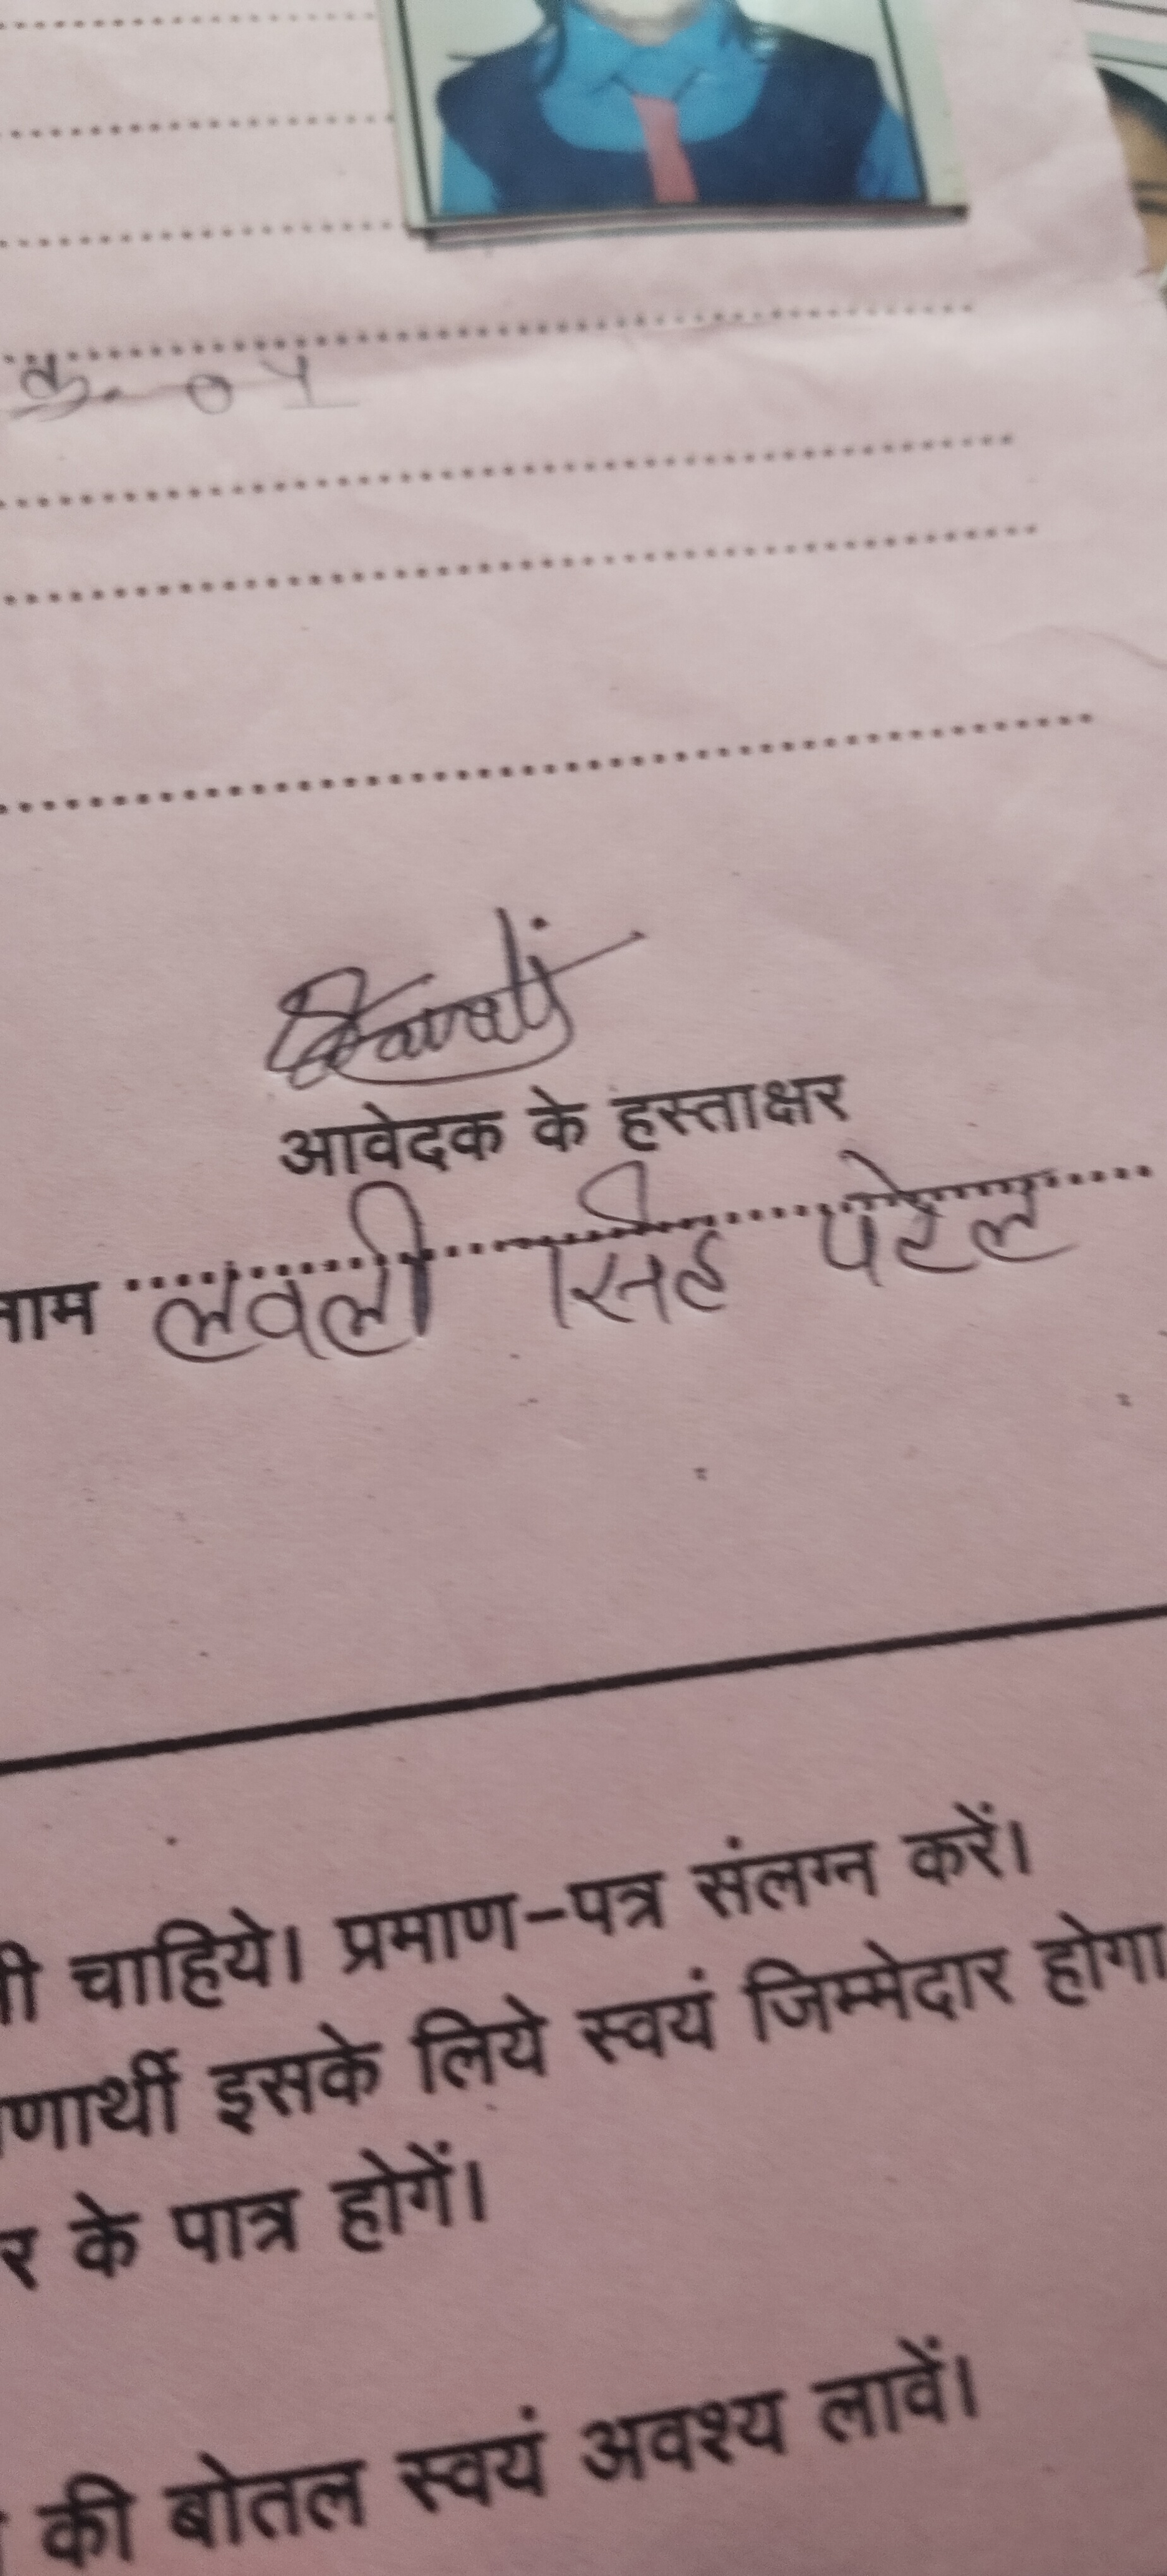 क्र. 04
आवेदक के हस्ताक्षर
नाम लवली सिंह पटेल
चाहिये। प्रमाण-पत्र संलग्न करें।
णार्थी इसके लिये स्वयं जिम्मेदार होगा
र के पात्र होगें।
की बोतल स्वयं अवश्य लावें।